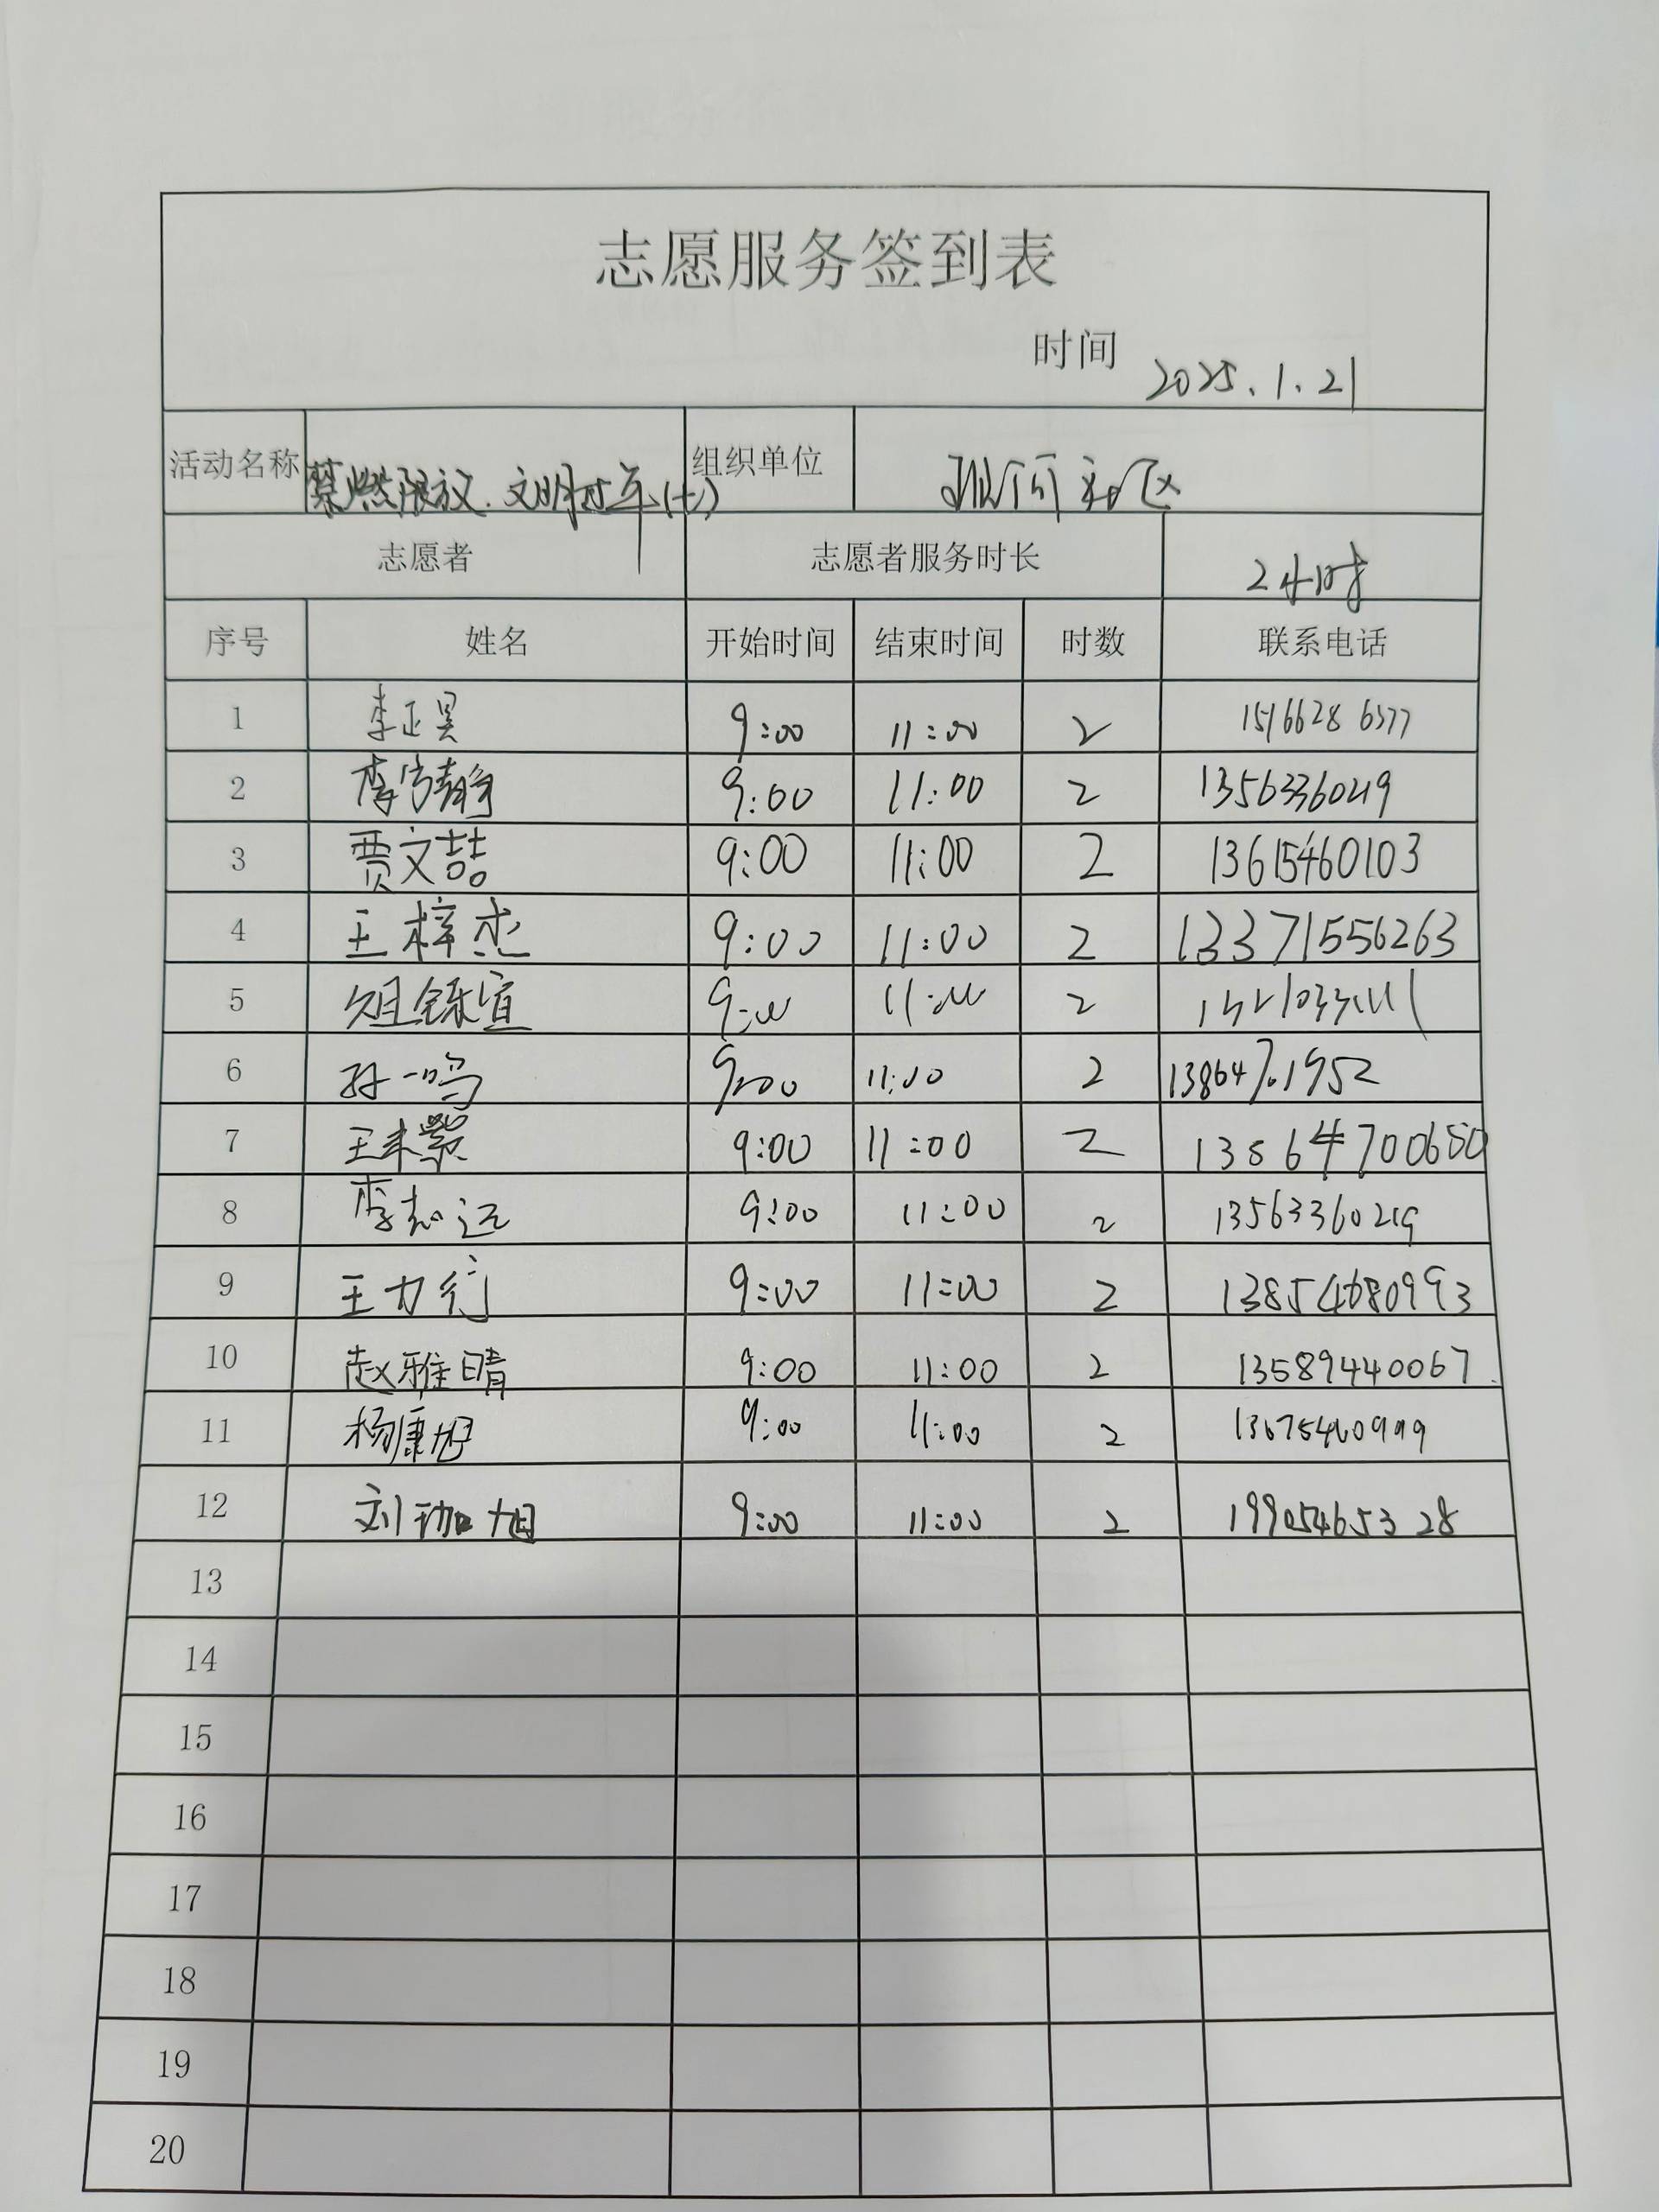 志愿服务签到表
时间 2025.1.21
活动名称 禁燃限放.文明过年(七) 组织单位 社区
志愿者 志愿者服务时长 2小时
序号 姓名 开始时间 结束时间 时数 联系电话
1 李正昊 9:00 11:00 2
2 李 静 9:00 11:00 2
3 贾文喆 9:00 11:00 2 13615460103
4 王梓杰 9:00 11:00 2 13371556263
5 宣 9:00 11:00 2
6 孙一鸣 9:00 11:00 2
7 王 9:00 11:00 2 13864700680
8 李志远 9:00 11:00 2 13563360219
9 王力衍 9:00 11:00 2 13854680993
10 赵雅晴 9:00 11:00 2 13589440067
11 杨康旭 9:00 11:00 2
12 刘珈旭 9:00 11:00 2 19905465328
13
14
15
16
17
18
19
20